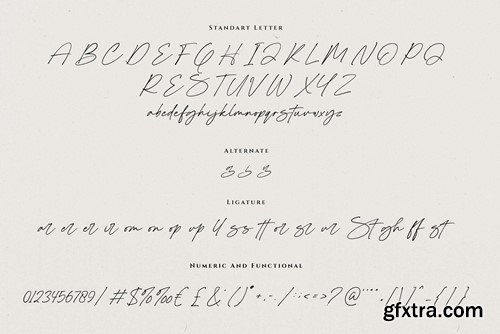 Standart Letter
A B C D E F G H I J K L M N O P Q
R S T U V W X Y Z
abcdefghijklmnopqrstuvwxyz
Alternate
Ligature
ar er ir om on op up ll ss tt or sr ur St gh ff gt
Numeric And Functional
0123456789 / # $ % ‰ € £ & ' ( ) ° + - / : ; < = > ? @ [ \ ] ^ - { | }
gfxtra.com